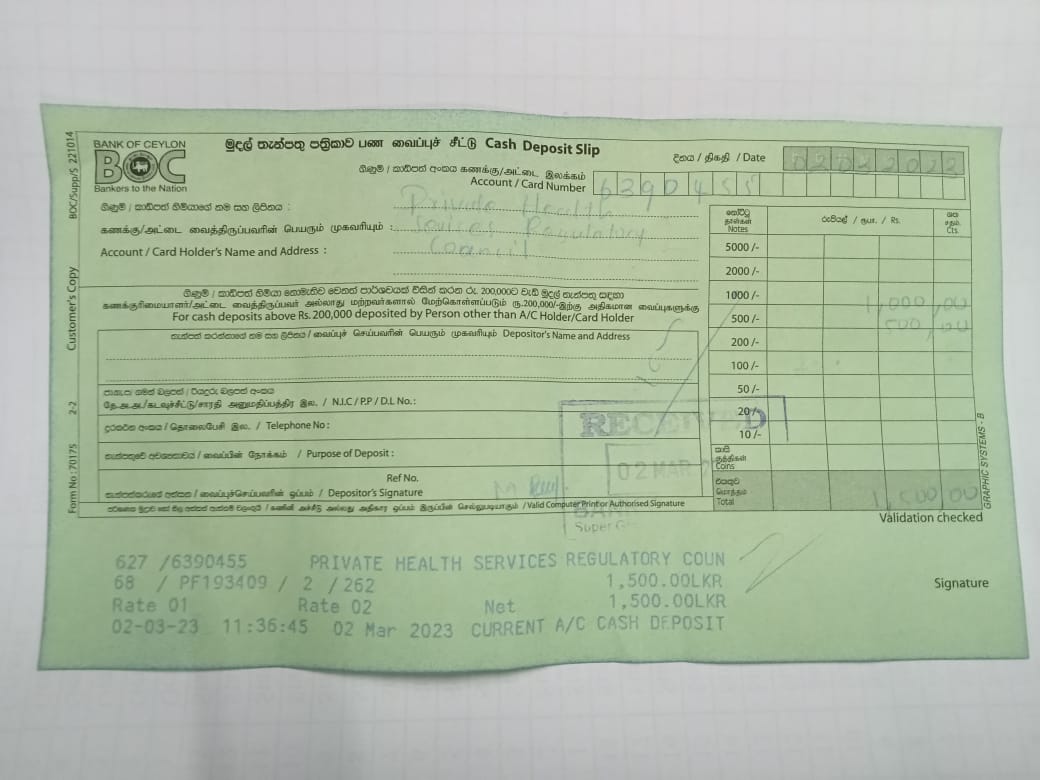 BOC/Supp/S 221014
Customer's Copy
2-2
Form No : 70175
BANK OF CEYLON
BOC
Bankers to the Nation
මුදල් තැන්පතු පත්‍රිකාව பண வைப்புச் சீட்டு Cash Deposit Slip
දිනය / திகதி / Date
ගිණුම් / කාඩ්පත් අංකය கணக்கு/அட்டை இலக்கம்
Account / Card Number 6390455
ගිණුම් / කාඩ්පත් හිමියාගේ නම සහ ලිපිනය :
கணக்கு/அட்டை வைத்திருப்பவரின் பெயரும் முகவரியும் :
Account / Card Holder's Name and Address :
Private Health
Regulatory
Council
ගිණුම් / කාඩ්පත් හිමියා නොමැතිව වෙනත් පාර්ශවයක් විසින් කරන රු. 200,000ට වැඩි මුදල් තැන්පතු සඳහා
கணக்குரிமையாளர்/அட்டை வைத்திருப்பவர் அல்லாது மற்றவர்களால் மேற்கொள்ளப்படும் ரூ.200,000/-இற்கு அதிகமான வைப்புகளுக்கு
For cash deposits above Rs. 200,000 deposited by Person other than A/C Holder/Card Holder
තැන්පත් කරන්නාගේ නම සහ ලිපිනය / வைப்புச் செய்பவரின் பெயரும் முகவரியும் / Depositor's Name and Address
තේ.அ.அ./கடவுச்சீட்டு/சாரதி அனுமதிப்பத்திர இல. / N.I.C / P.P / D.L No.:
දුරකථන අංකය / தொலைபேசி இல. / Telephone No :
තැන්පතුවේ අවශ්‍යතාවය / வைப்பின் நோக்கம் / Purpose of Deposit :
Ref No.
තැන්පත්කරුගේ අත්සන / வைப்புச்செய்பவரின் ஒப்பம் / Depositor's Signature
/ Valid Computer Print or Authorised Signature
නෝට්ටු
தாள்கள்
Notes
රුපියල් / ரூபா. / Rs.
ශත
சதம்
Cts.
5000 /-
2000 /-
1000 /- 1,000.00
500 /- 500.00
200 /-
100 /-
50 /-
20 /-
10 /-
කාසි
குத்திகள்
Coins
එකතුව
மொத்தம்
Total 1,500.00
GRAPHIC SYSTEMS - B
RECEIVED
02 MAR
Super
Validation checked
Signature
627 /6390455 PRIVATE HEALTH SERVICES REGULATORY COUN
68 / PF193409 / 2 /262 1,500.00LKR
Rate 01 Rate 02 Net 1,500.00LKR
02-03-23 11:36:45 02 Mar 2023 CURRENT A/C CASH DEPOSIT